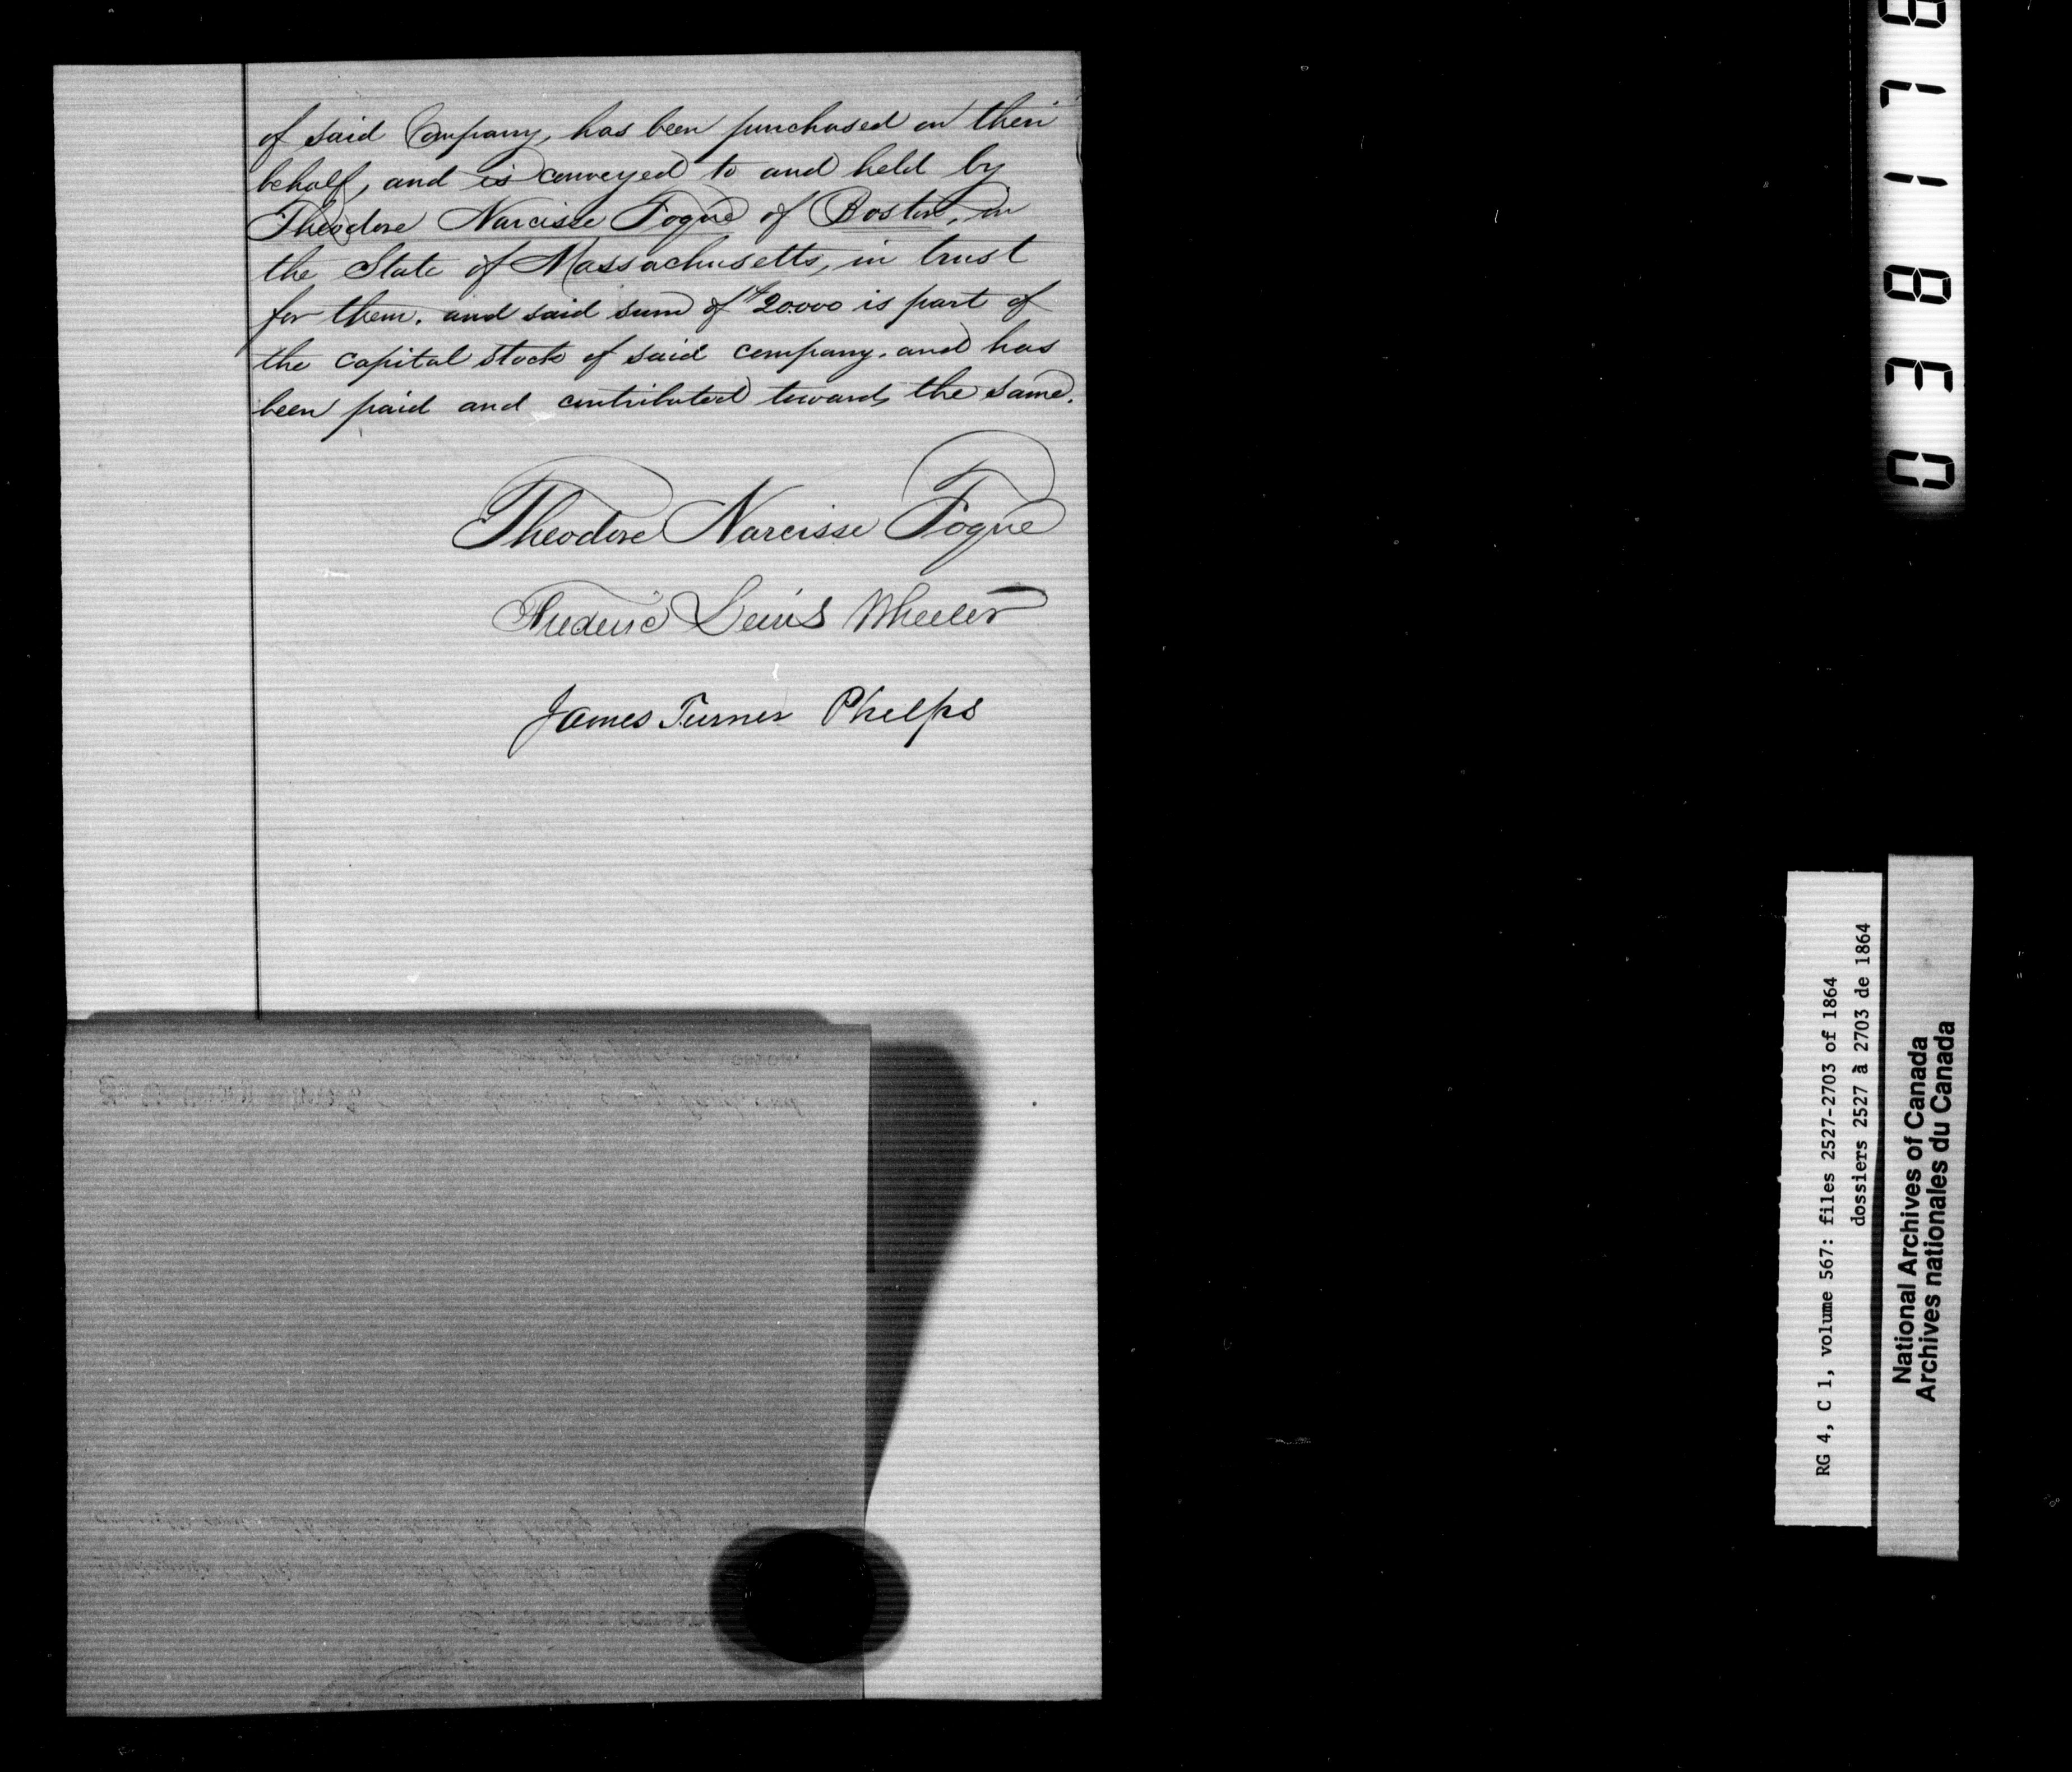 of said Company, has been purchased on their
behalf, and is conveyed to and held by
Theodore Narcisse Foque of Boston, in
the State of Massachusetts, in trust
for them. and said sum of $20.000 is part of
the capital stock of said company. and has
been paid and contributed towards the same.
Theodore Narcisse Foque
Frederic Lewis Wheeler
James Turner Phelps
038178
RG 4, C 1, volume 567: files 2527-2703 of 1864
dossiers 2527 à 2703 de 1864
National Archives of Canada
Archives nationales du Canada